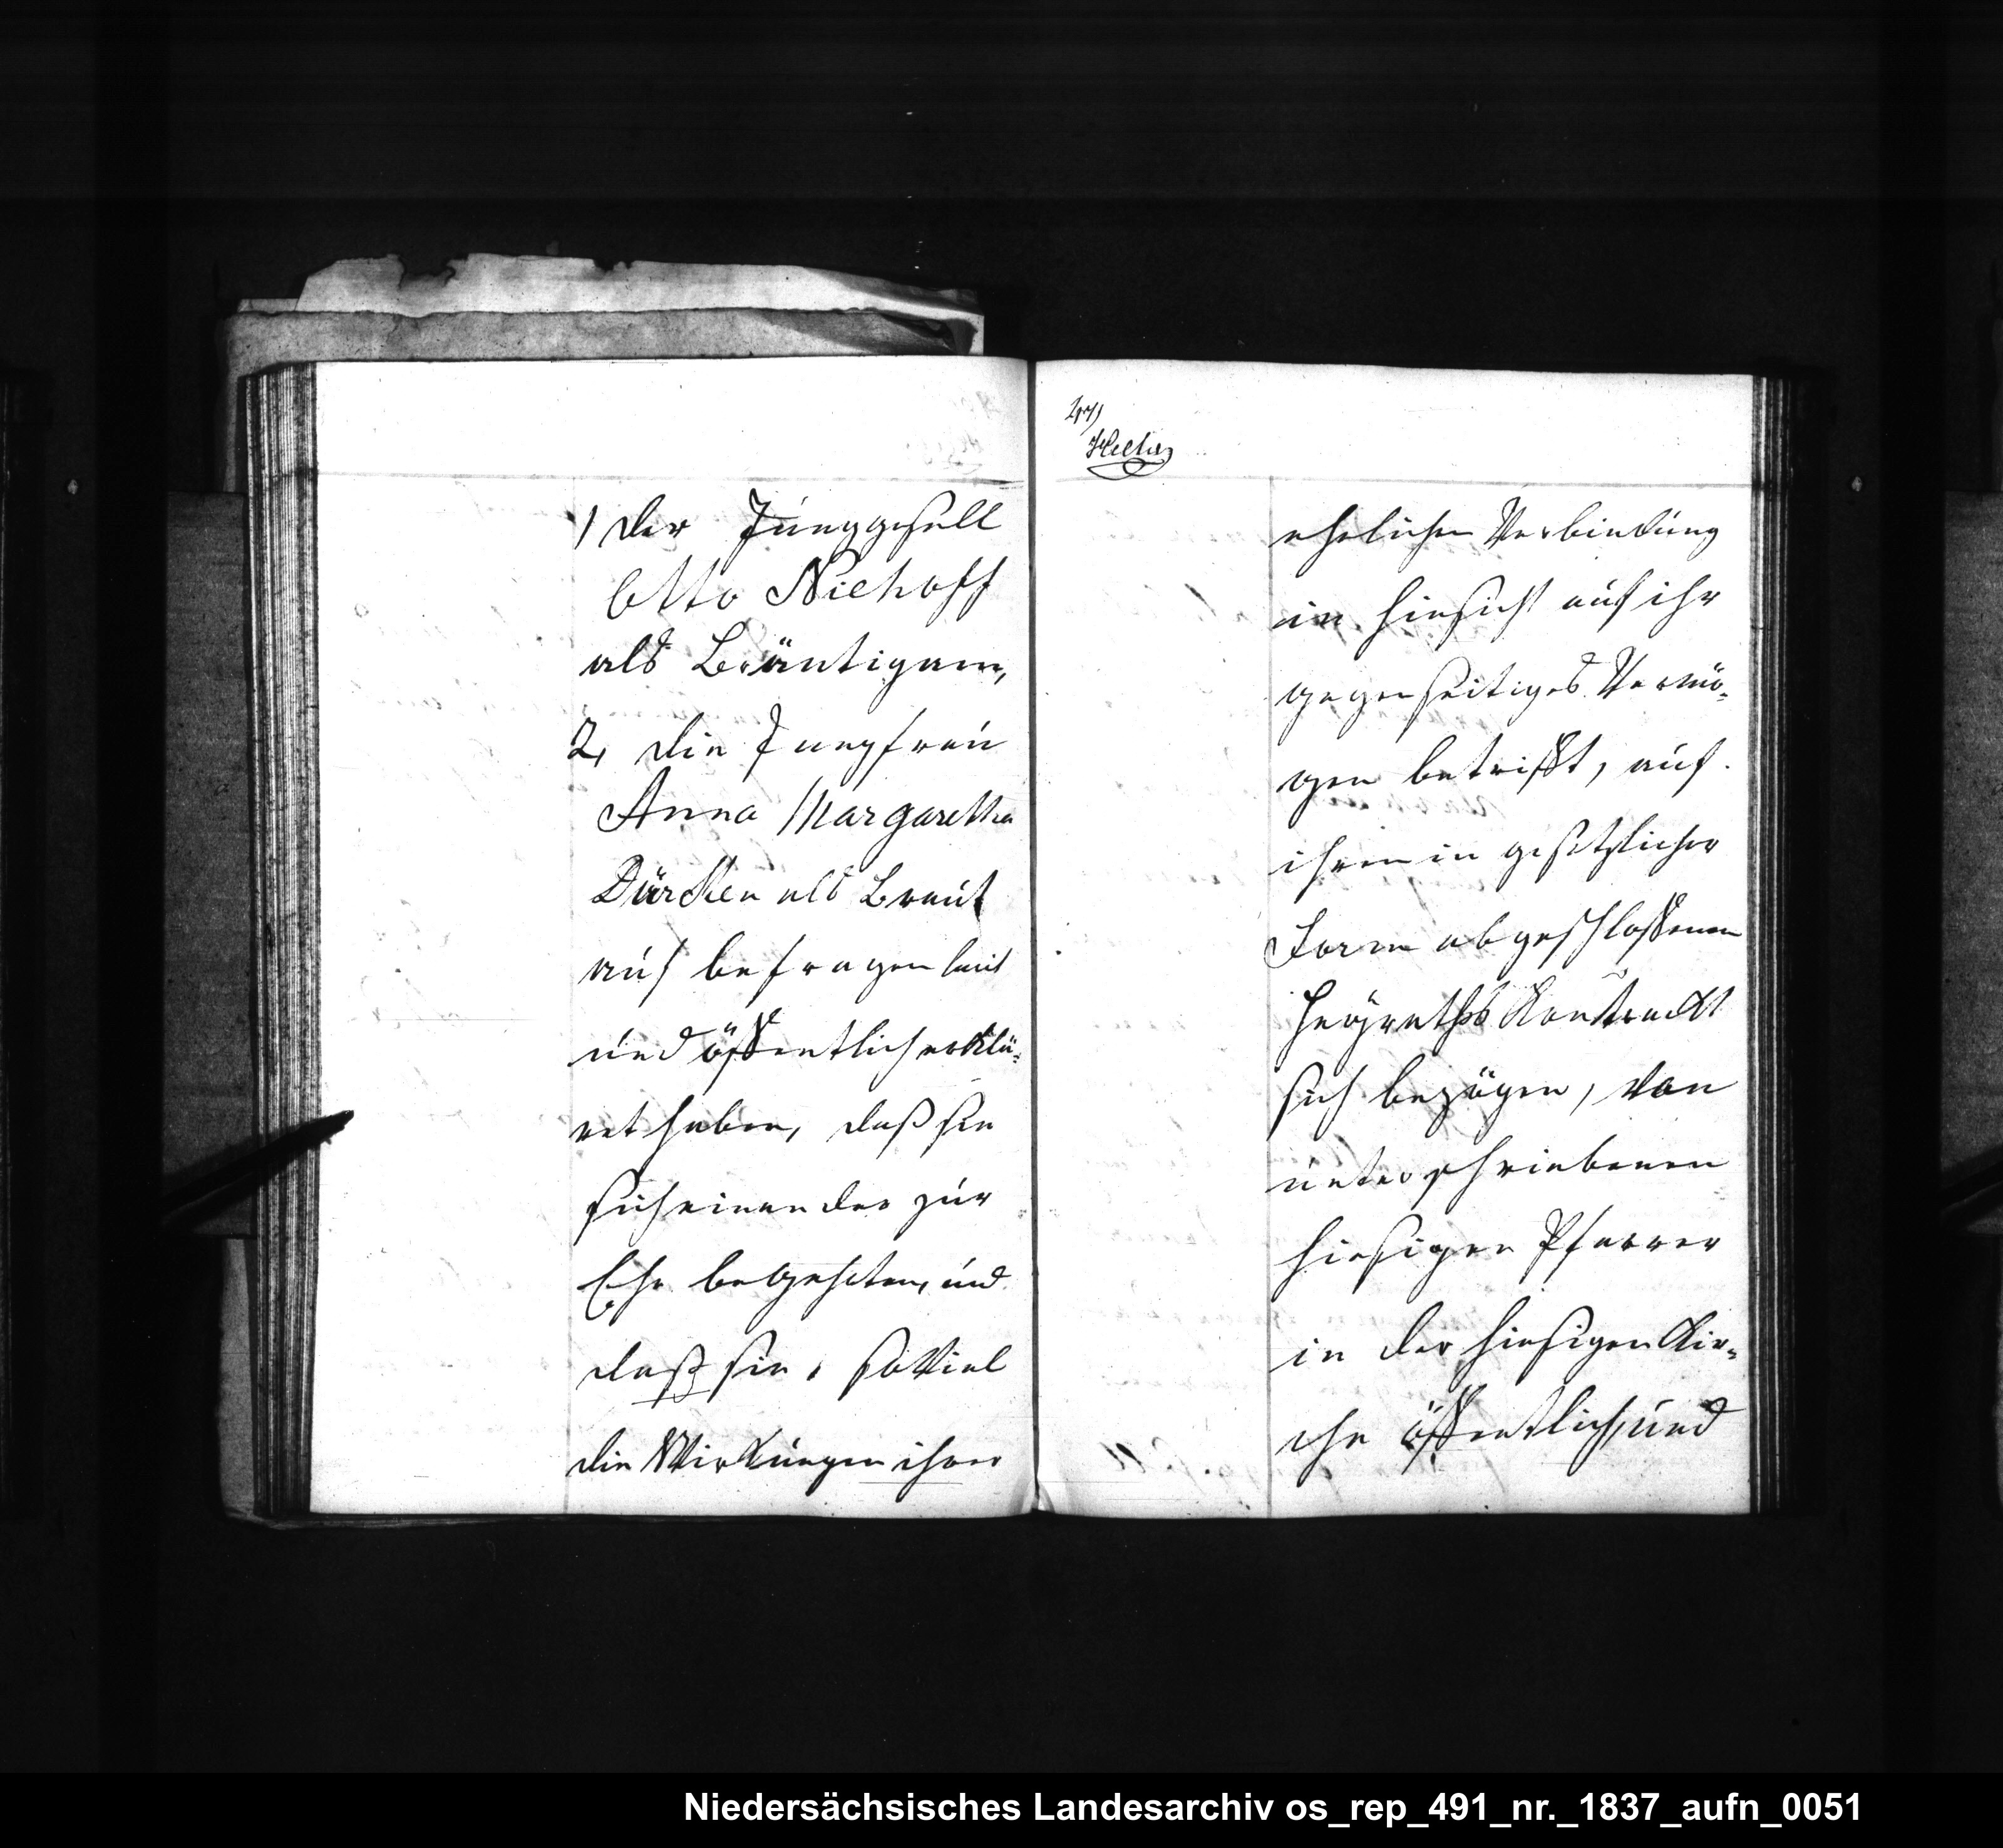 1) der Junggesell
Otto Niehoff
als Bräutigam,
2, die Jungfrau
Anna Margaretha
Dürcken als Braut
auf befragen laut
und öffentlich erklä-
ret haben, daß sie
sich einander zur
Ehe begehrten, und
daß sie, soviel
die Wirkungen ihrer
47)
ehelichen Verbindung
in hinsicht auf ihr
gegenseitiges Vermö-
gen betrifft, auf
ihren in gesetzlicher
Form abgeschlossenen
Heyraths Kontrackt
sich bezögen, von
unterschriebenen
hiesigen Pfarrer
in der hiesigen Kir-
che öffentlich, und
Niedersächsisches Landesarchiv os_rep_491_nr._1837_aufn_0051